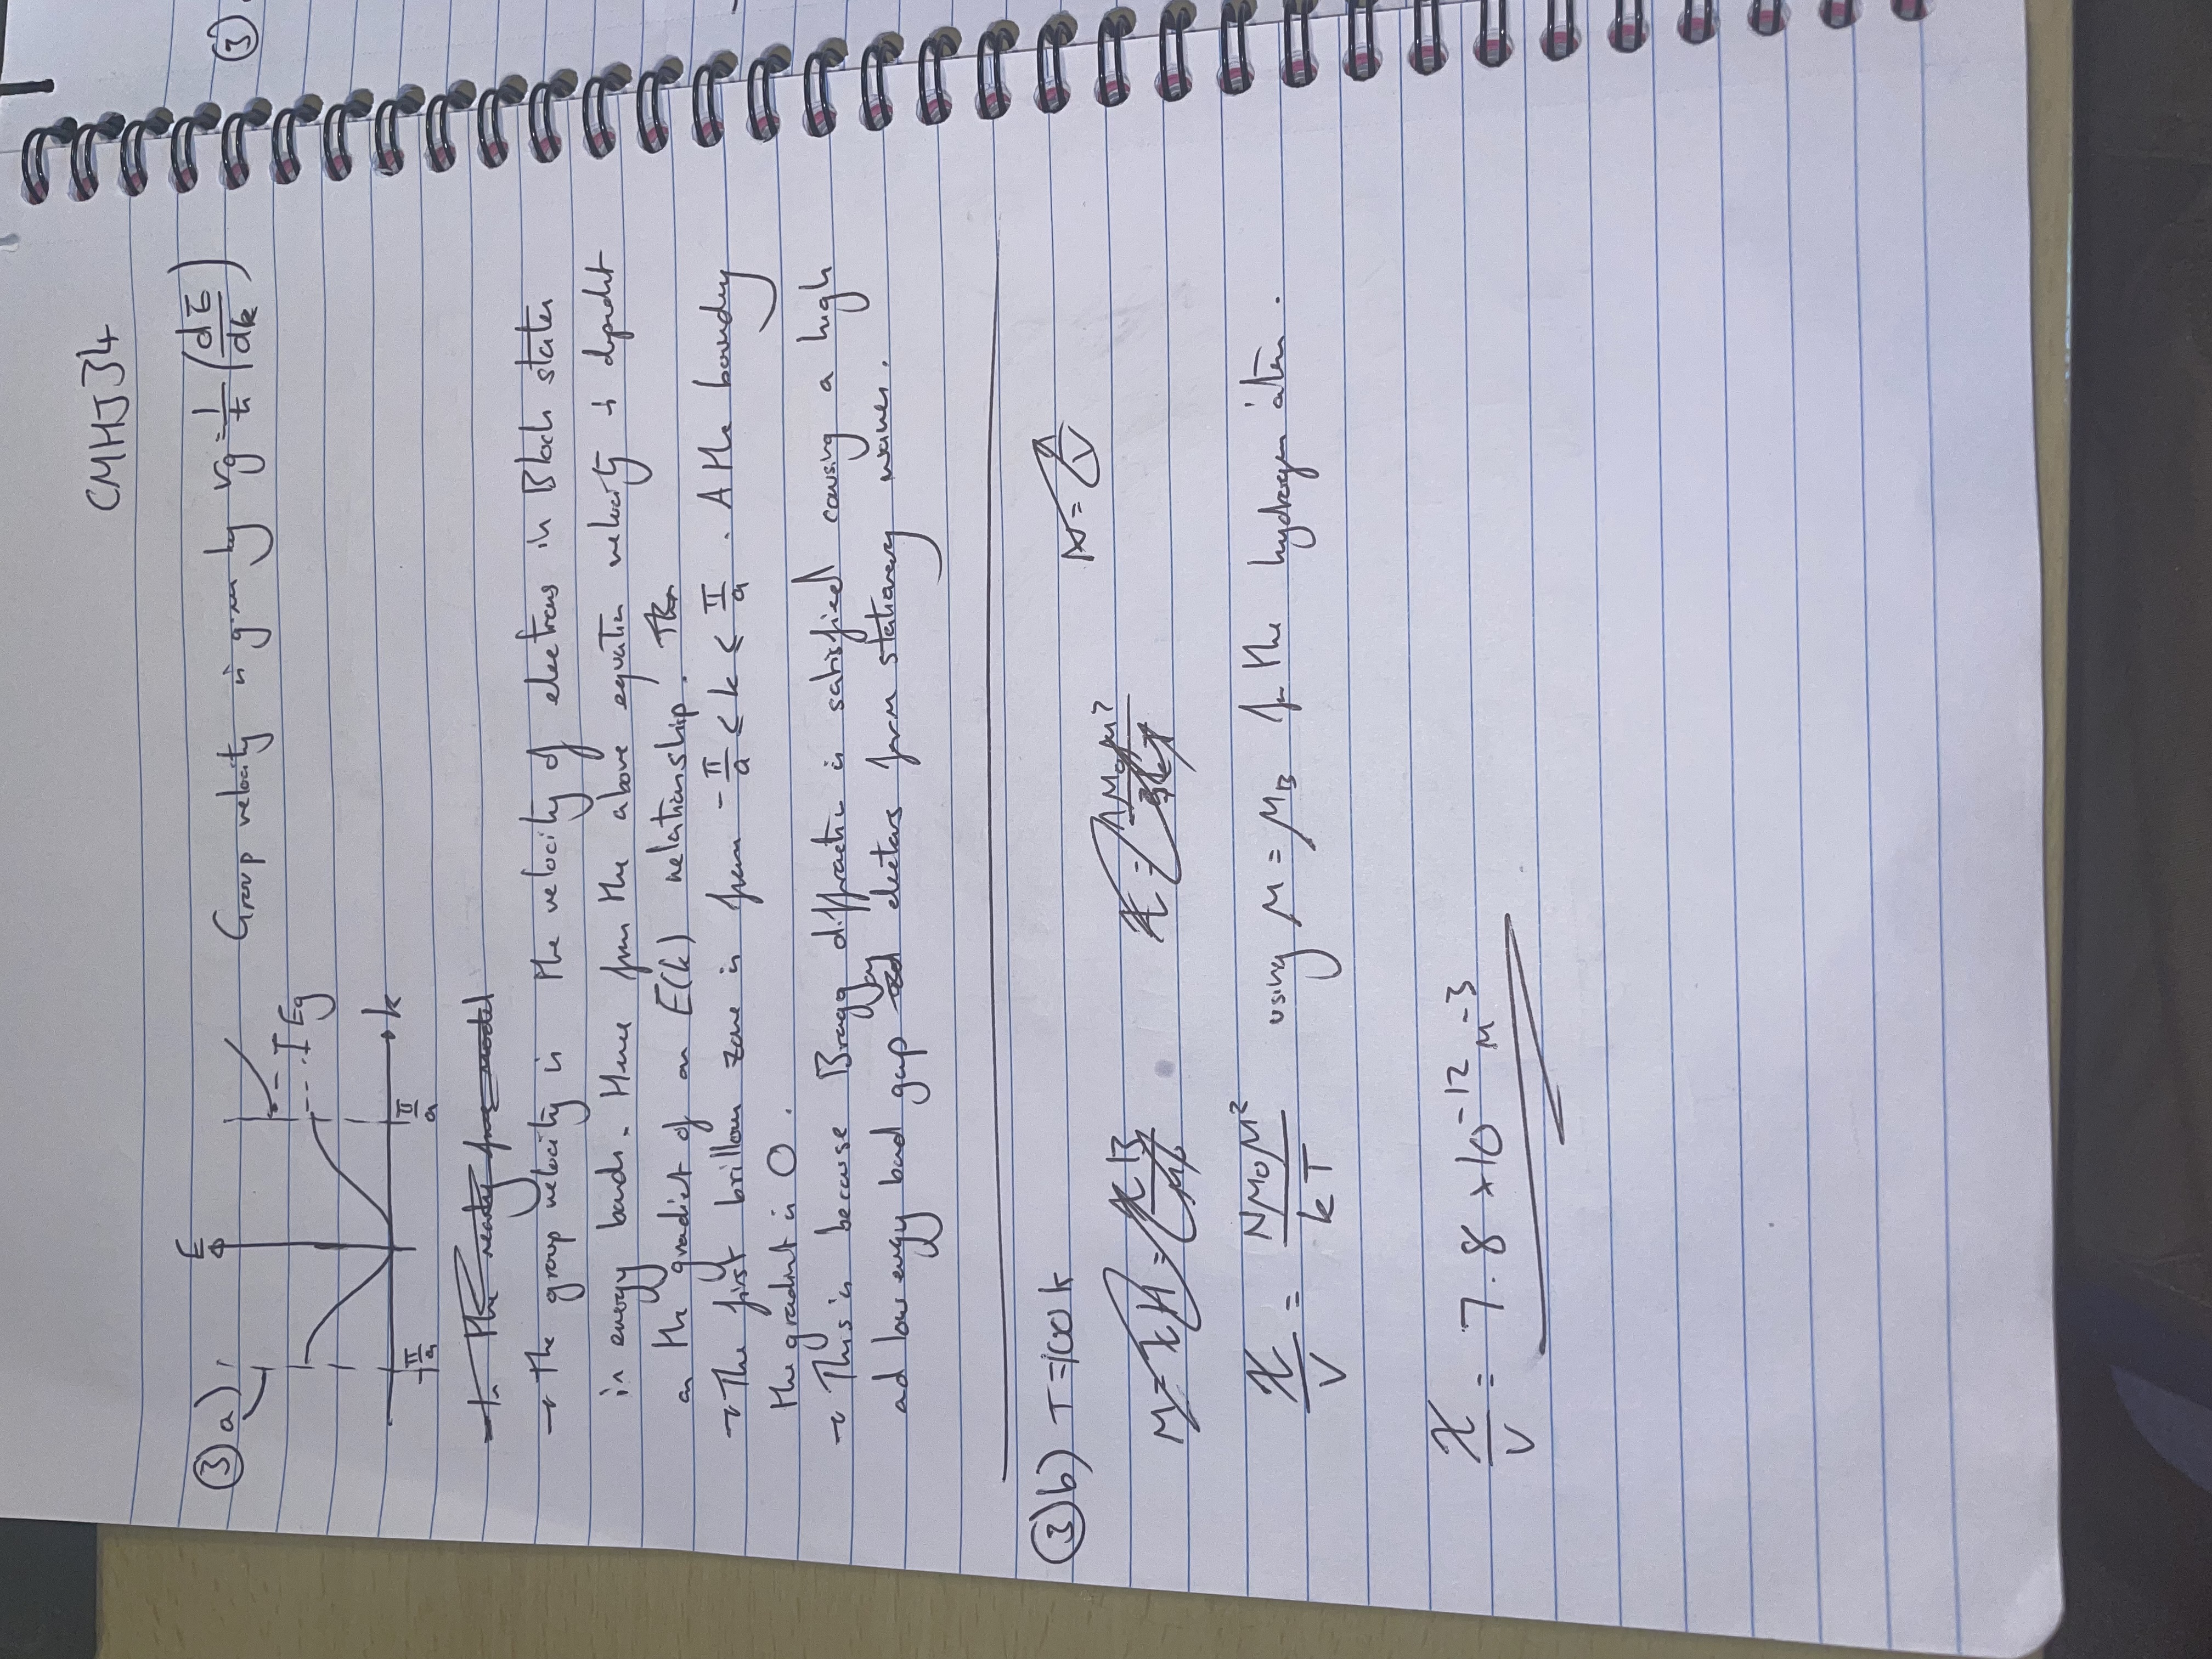 CMHJ34
③ a)
E
Group velocity is given by vg = 1/ħ (dE/dk)
Eg
k
-π/a
π/a
In the nearly free model
→ The group velocity is the velocity of electrons in Bloch states
in energy bands. Hence from the above equation velocity is dependent
on the gradient of an E(k) relationship. The
→ The first brillouin zone is from -π/a ≤ k ≤ π/a. A the boundary
the gradient is 0.
→ This is because Bragg diffraction is satisfied causing a high
and low energy band gap and electrons form stationary waves.
③ b) T=100k
N = /V
M = χH = χB/μ0
χ = Nμ0μ²/3kT
χ/V = Nμ0μ²/kT using μ = μB for the hydrogen atom.
χ/V = 7.8 ×10⁻¹² m⁻³
③